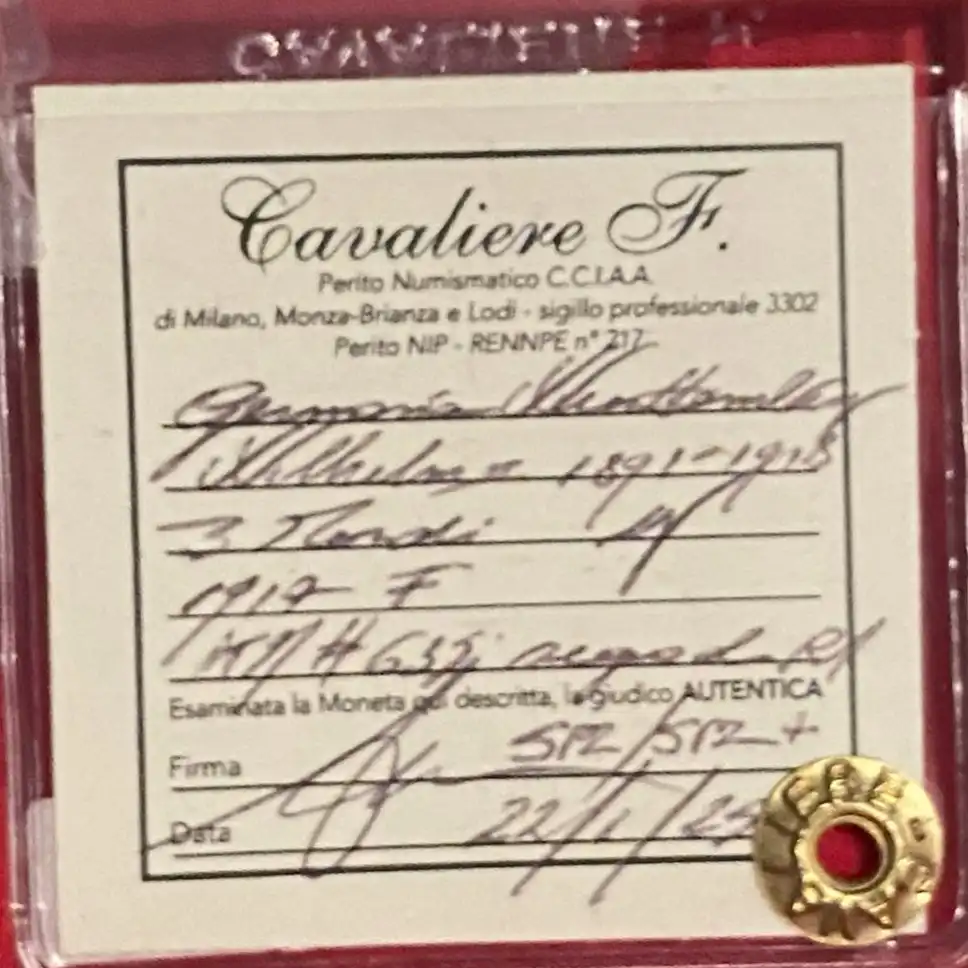 Cavaliere F.
Perito Numismatico C.C.I.A.A.
di Milano, Monza-Brianza e Lodi - sigillo professionale 3302
Perito NIP - RENNPE n° 217
Germania Wurttemberg
Wilhelm II 1891-1918
3 Mark
1914 F
KM# 635
Esaminata la Moneta qui descritta, la giudico AUTENTICA
Firma SPL/SPL+
Data 22/1/